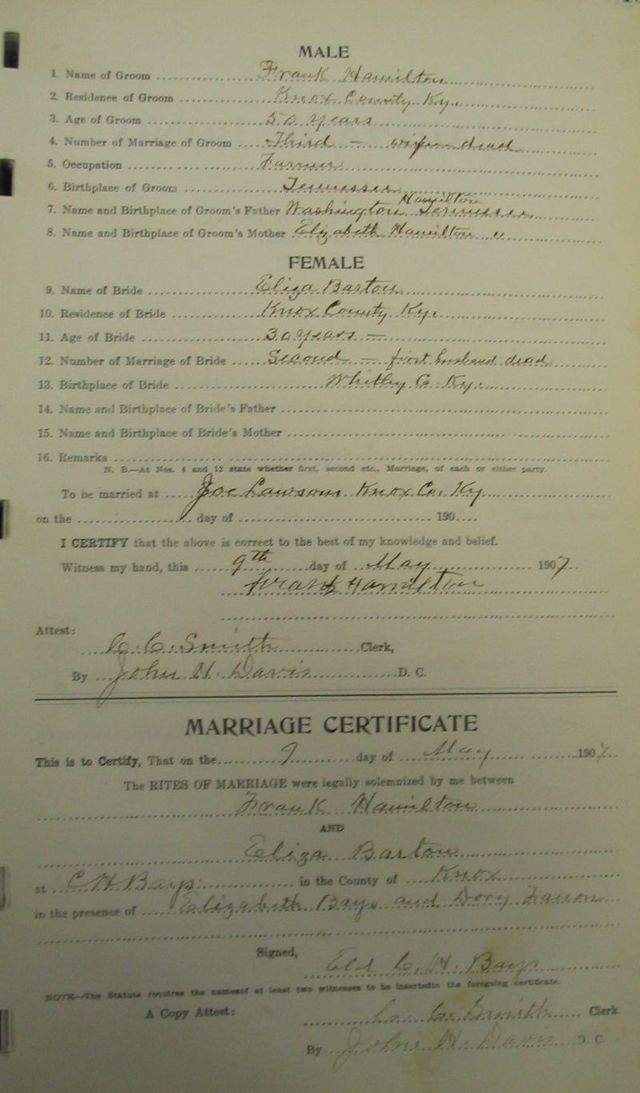 MALE
1. Name of Groom Frank Hamilton
2. Residence of Groom Knox County Ky.
3. Age of Groom 50 years
4. Number of Marriage of Groom Third — wife dead
5. Occupation Farmer
6. Birthplace of Groom Tennessee
Hamilton
7. Name and Birthplace of Groom's Father Washington Tennessee
8. Name and Birthplace of Groom's Mother Elizabeth Hamilton "
FEMALE
9. Name of Bride Eliza Barton
10. Residence of Bride Knox County Ky.
11. Age of Bride 30 years —
12. Number of Marriage of Bride Second — first husband dead
13. Birthplace of Bride Whitley Co. Ky.
14. Name and Birthplace of Bride's Father
15. Name and Birthplace of Bride's Mother
16. Remarks
N. B.—At Nos. 4 and 12 state whether first, second etc., Marriage, of each or either party.
To be married at Joe Lawsons Knox Co. Ky
on the day of 190
I CERTIFY that the above is correct to the best of my knowledge and belief.
Witness my hand, this 9th day of May 1907
Frank Hamilton
Attest:
C. C. Smith Clerk,
By John H. Davis D. C.
MARRIAGE CERTIFICATE
This is to Certify, That on the 9 day of May 1907
The RITES OF MARRIAGE were legally solemnized by me between
Frank Hamilton
AND
Eliza Barton
at C H Bays in the County of Knox
in the presence of Elizabeth Bays and Dory
Signed,
Eld C. H. Bays
NOTE—The Statute requires the namesof at least two witnesses to be insertedin the foregoing certificate.
A Copy Attest: C. C. Smith Clerk.
By John H. Davis D. C.